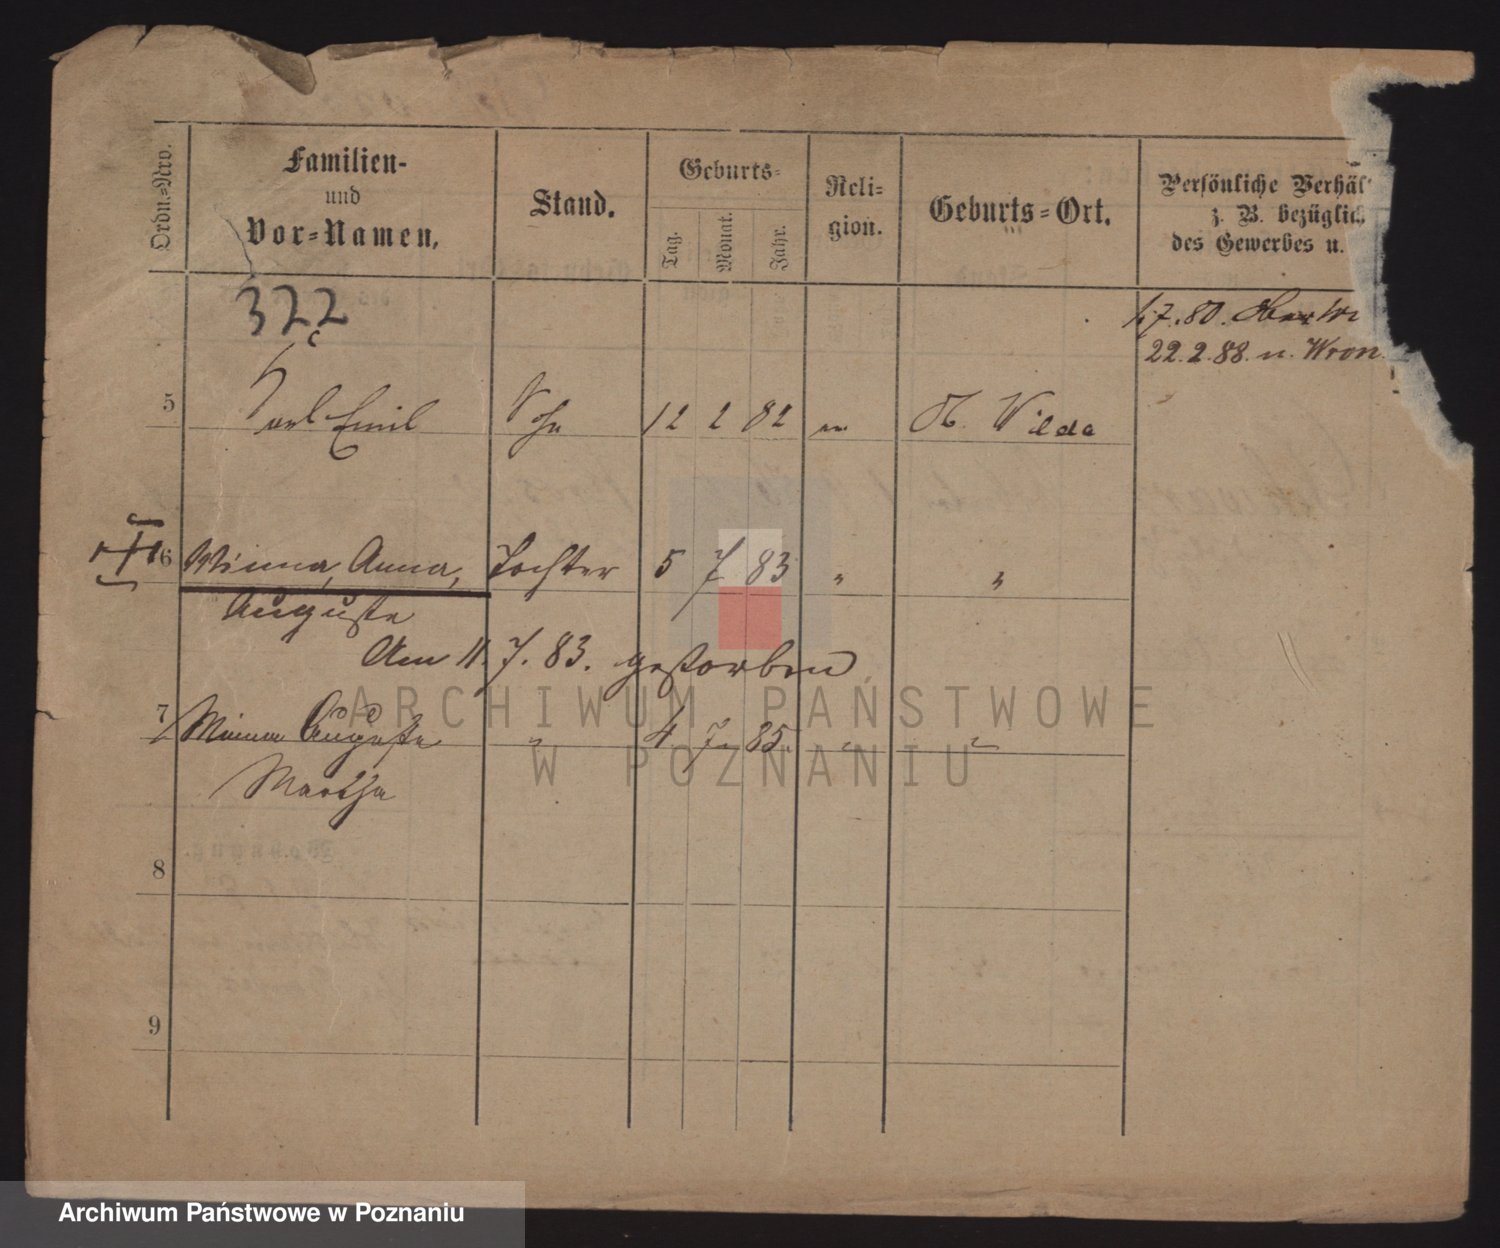 Ordn.-Nro.
Familien-
und
Vor-Namen.
Stand.
Geburts-
Tag.
Monat.
Jahr.
Reli-
gion.
Geburts-Ort.
Persönliche Verhäl
z. B. bezüglich
des Gewerbes u.
322
1.7.80. Ober Wi
22.2.88. n. Wron
5 Karl Emil Sohn 12 2 82 ev. O. Wilda
6 Minna, Anna, Tochter 5 7 83 " "
Auguste
Am 11.7.83. gestorben
7 Minna Auguste " 4 7. 85. " "
Martha
8
9
ARCHIWUM PAŃSTWOWE
W POZNANIU
Archiwum Państwowe w Poznaniu